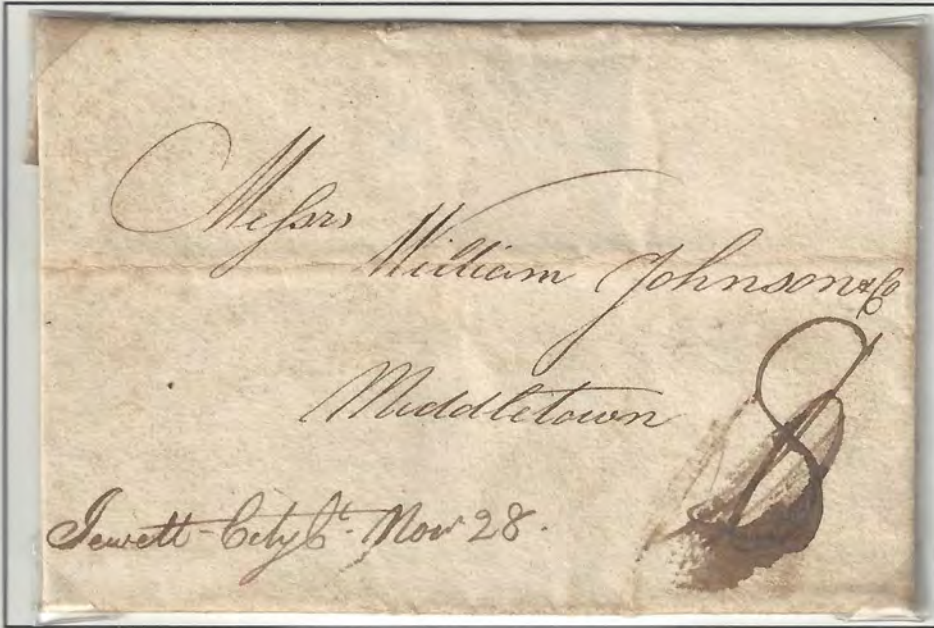 Messrs
William Johnson & Co
Middletown
8
Jewett-City Ct. Nov 28.